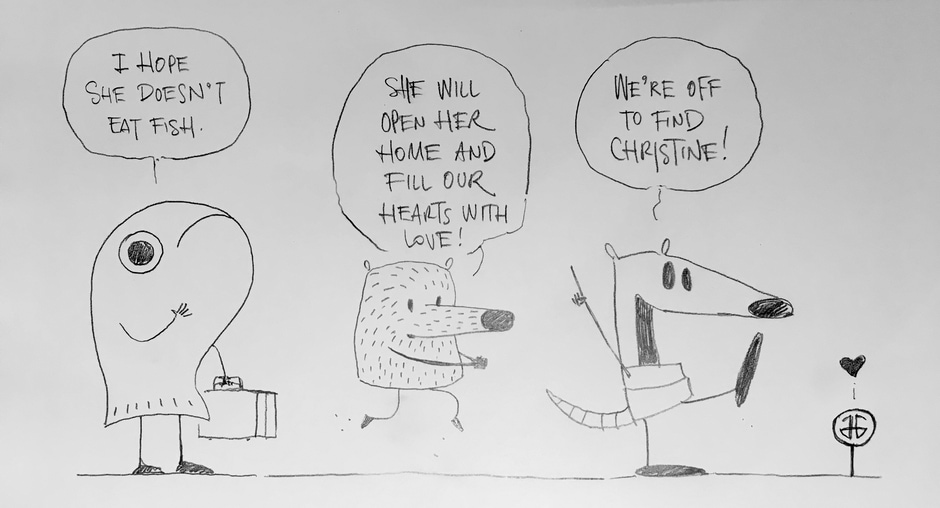 I HOPE
SHE DOESN'T
EAT FISH.
SHE WILL
OPEN HER
HOME AND
FILL OUR
HEARTS WITH
LOVE!
WE'RE OFF
TO FIND
CHRISTINE!